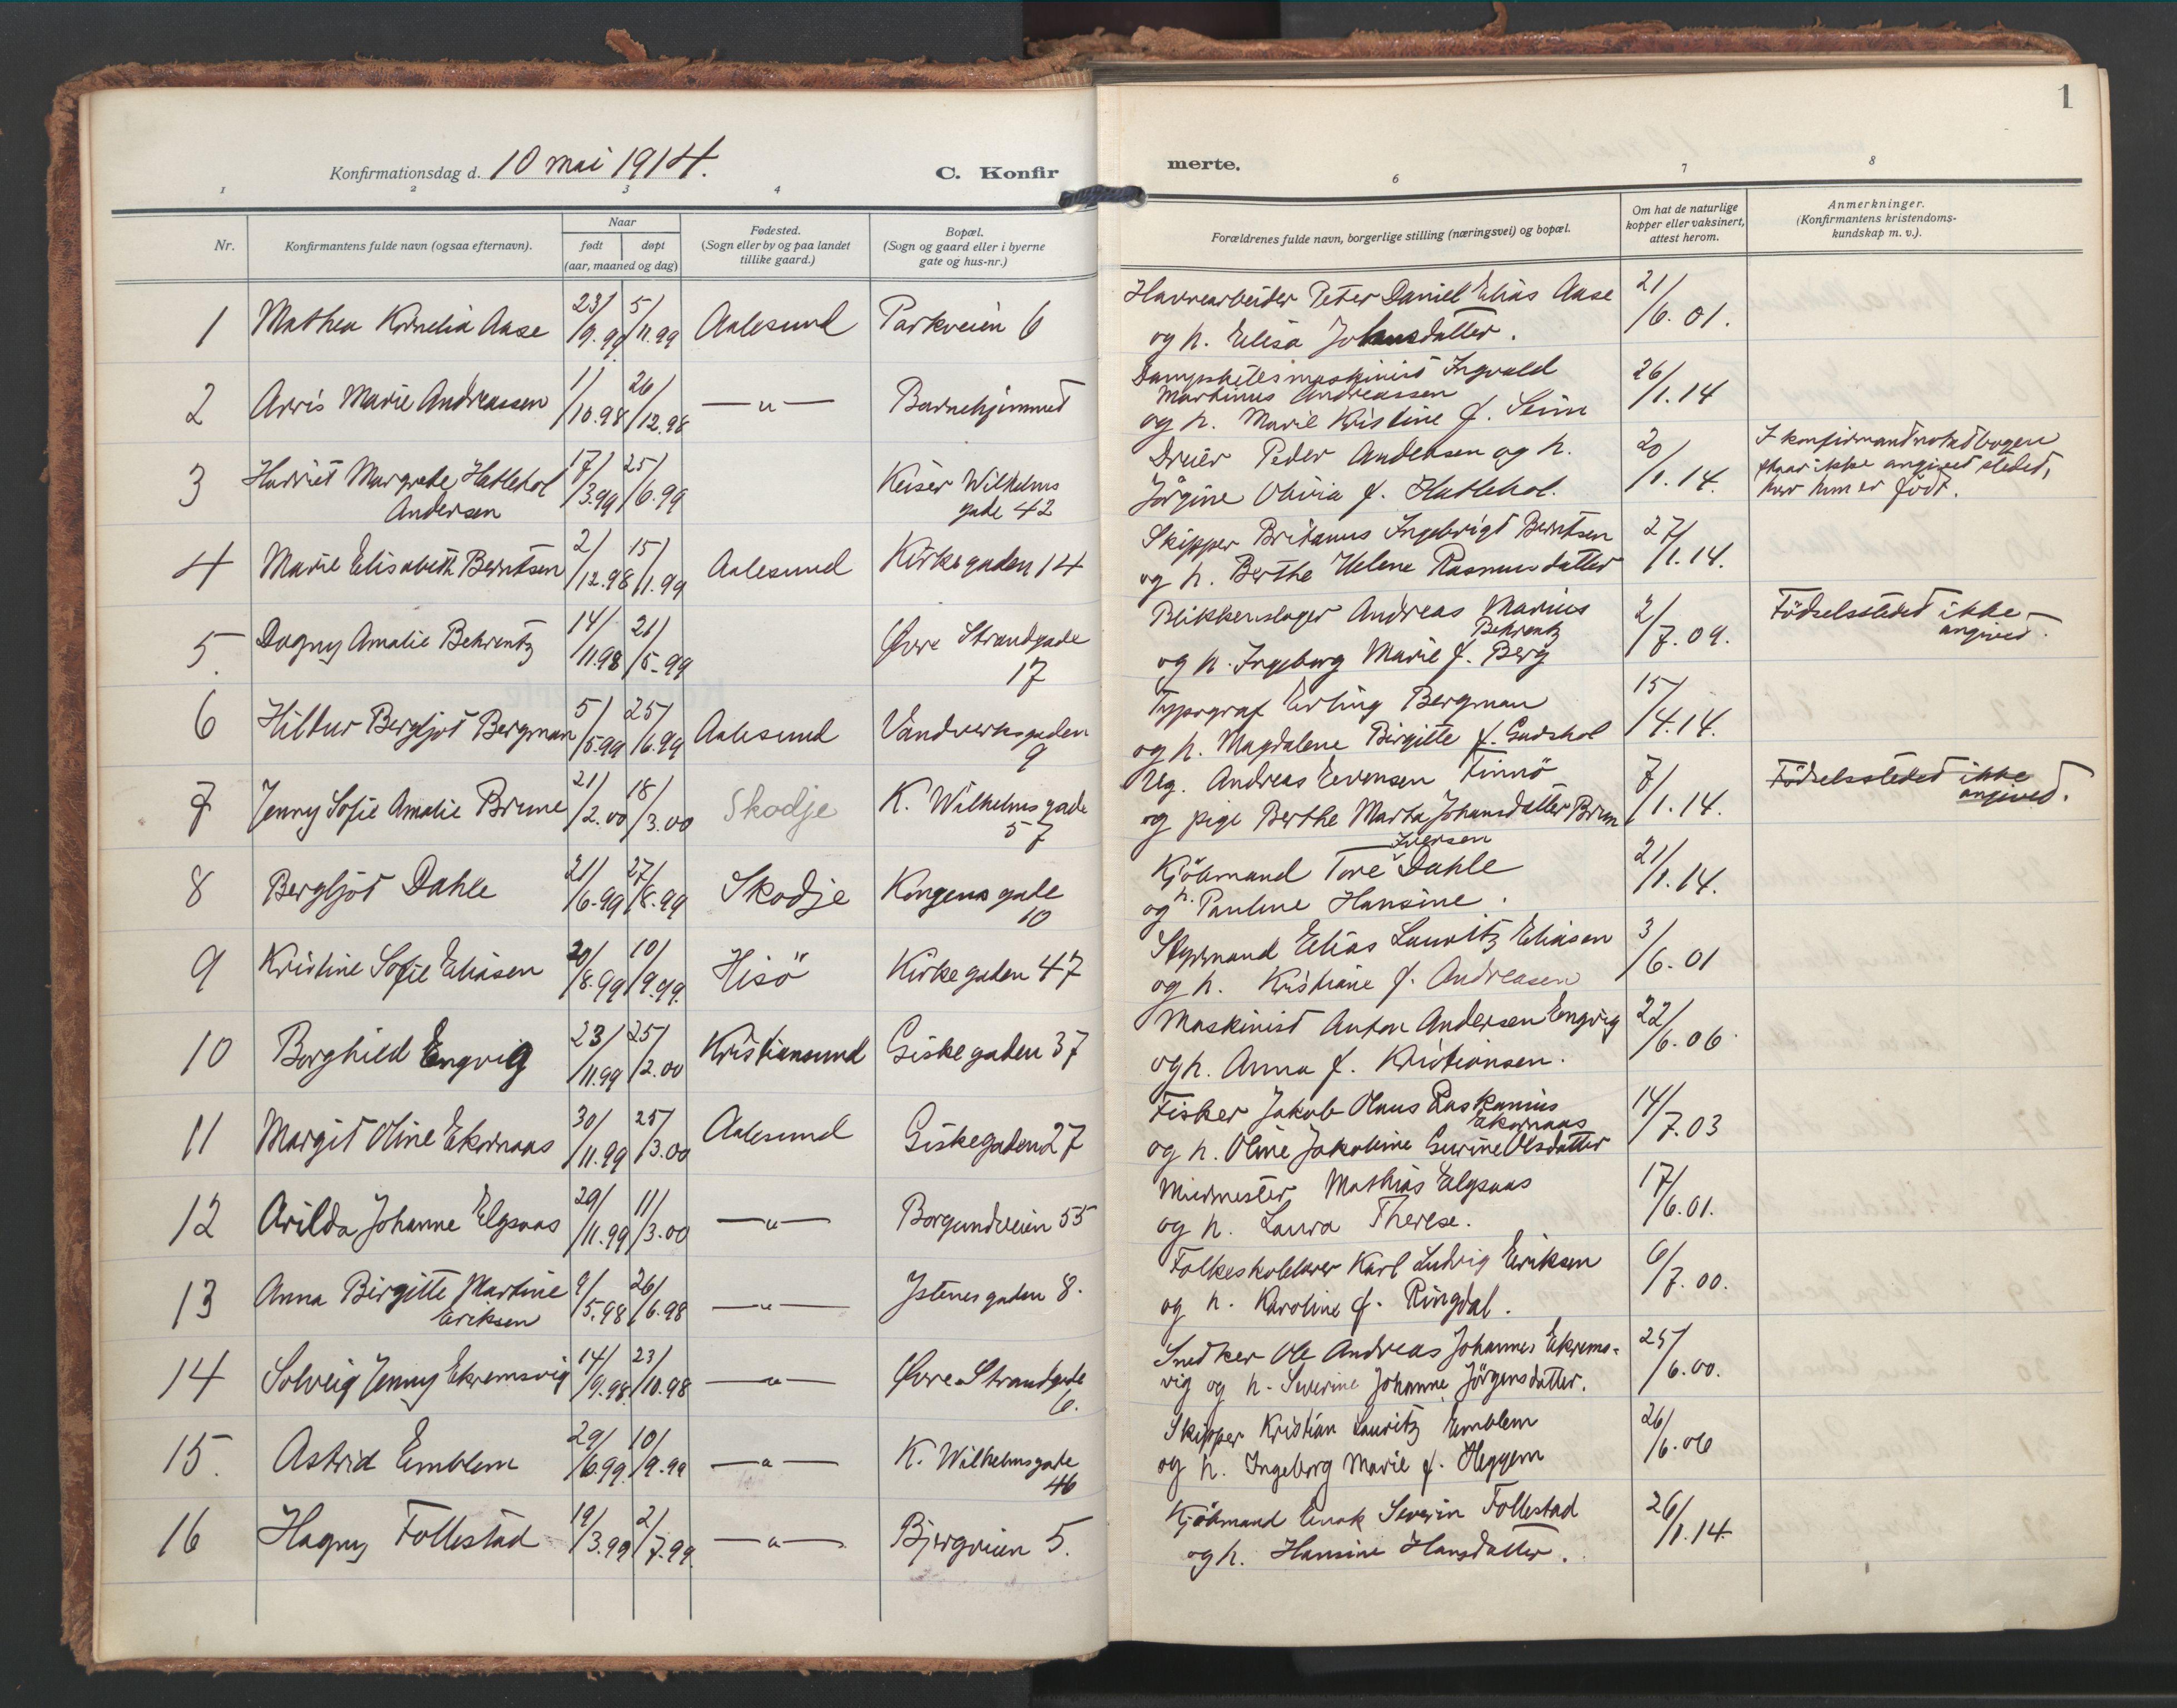 1
Konfirmationsdag d. 10 mai 1914.
C. Konfir
merte.
1 2 3 4 6 7 8
Nr.
Konfirmantens fulde navn (ogsaa efternavn).
Naar
født
døpt
(aar, maaned og dag)
Fødested.
(Sogn eller by og paa landet
tillike gaard.)
Bopæl.
(Sogn og gaard eller i byerne
gate og hus-nr.)
Forældrenes fulde navn, borgerlige stilling (næringsvei) og bopæl.
Om hat de naturlige
kopper eller vaksinert,
attest herom.
Anmerkninger.
(Konfirmantens kristendoms-
kundskap m. v.).
1 Mathea Kornelia Aase 23/9.99 5/11.99 Aalesund Parkveien 6
Havnearbeider Peter Daniel Elias Aase 21/6.01.
og h. Elisa Johansdatter.
2 Marie Andreassen 1/10.98 26/12.98 —"— Barnehjemmet
Dampskibsmaskinist Ingvald 26/1.14
Martinus Andreassen
og h. Marie Kristine f. Seim
3 Harriet Margrete Hatlehol 17/3.99 25/6.99 Keiser Wilhelms
Andersen gade 42
Dreier Peder Andersen og h. 20/1.14.
Jørgine Olivia f. Hatlehol.
I konfirmandnotadbogen
staar ikke angivet stedet,
hvor hun er født.
4 Marie Elisabeth Berntsen 2/12.98 15/1.99 Aalesund Kirkegaden 14
Skipper Britanus Ingebrigt Berntsen 27/1.14.
og h. Berthe Helene Rasmusdatter
5. Dagny Amalie Behrentz 14/11.98 21/5.99 Øvre Strandgade
17
Blikkenslager Andreas Marius 2/7.09.
Behrentz
og h. Ingeborg Marie f. Berg
Födselsstedet ikke
angivet.
6 Hildur Bergljot Bergman 5/5.99 25/6.99 Aalesund Vandverksgaden
9
Typograf Erling Bergman 15/4.14.
og h. Magdalene Birgitte f. Gudshol
7 Jenny Sofie Amalie Brune 21/2.00 18/3.00 Skodje K. Wilhelmsgade
57
Ug. Andreas Evensen Finnö 7/1.14.
og pige Berthe Marta Johansdatter Brun
Födselsstedet ikke
angived.
8 Bergljot Dahle 21/6.99 27/8.99 Skodje Kongens gade
10
Iversen
Kjöbmand Tore Dahle 21/1.14.
og h. Pauline Hansine.
9 Kristine Sofie Eliasen 20/8.99 10/9.99. Hisö Kirkegaden 47
Styrmand Elias Lauritz Eliasen 3/6.01
og h. Kristiane f. Andreasen
10 Borghild Engvig 23/11.99 25/2.00 Kristiansund Giskegaden 37
Maskinist Anton Andersen Engvig 22/6.06
og h. Anna f. Kristiansen.
11 Margit Oline Ekornaas 30/11.99 25/3.00 Aalesund Giskegaden 27
Fisker Jakob Olaus Laskanius 14/7.03
Ekornaas
og h. Oline Jakobine Gurine Olsdatter
12 Arilda Johanne Elgsaas 29/11.99 11/3.00 —"— Borgundveien 55
Murmester Mathias Elgsaas 17/6.01.
og h. Laura Therese.
13 Anna Birgitte Martine 9/5.98 26/6.98 —"— Istenesgaden 8.
Eriksen
Folkeskolelærer Karl Ludvig Eriksen 6/7.00.
og h. Karoline f. Ringdal.
14 Solveig Jenny Ekremsvig 14/9.98. 23/10.98 —"— Øvre Strandgade
6.
Snedker Ole Andreas Johannes Ekrems- 25/6.00.
vig og h. Severine Johanne Jörgensdatter.
15. Astrid Emblem 29/6.99. 10/9.99 —"— K. Wilhelmsgade
46
Skipper Kristian Lauritz Emblem 26/6.06
og h. Ingeborg Marie f. Heggem
16 Hagny Follestad 19/3.99 2/7.99. —"— Bjergveien 5.
Kjöbmand Enok Severin Follestad 26/1.14
og h. Hansine Hansdatter.